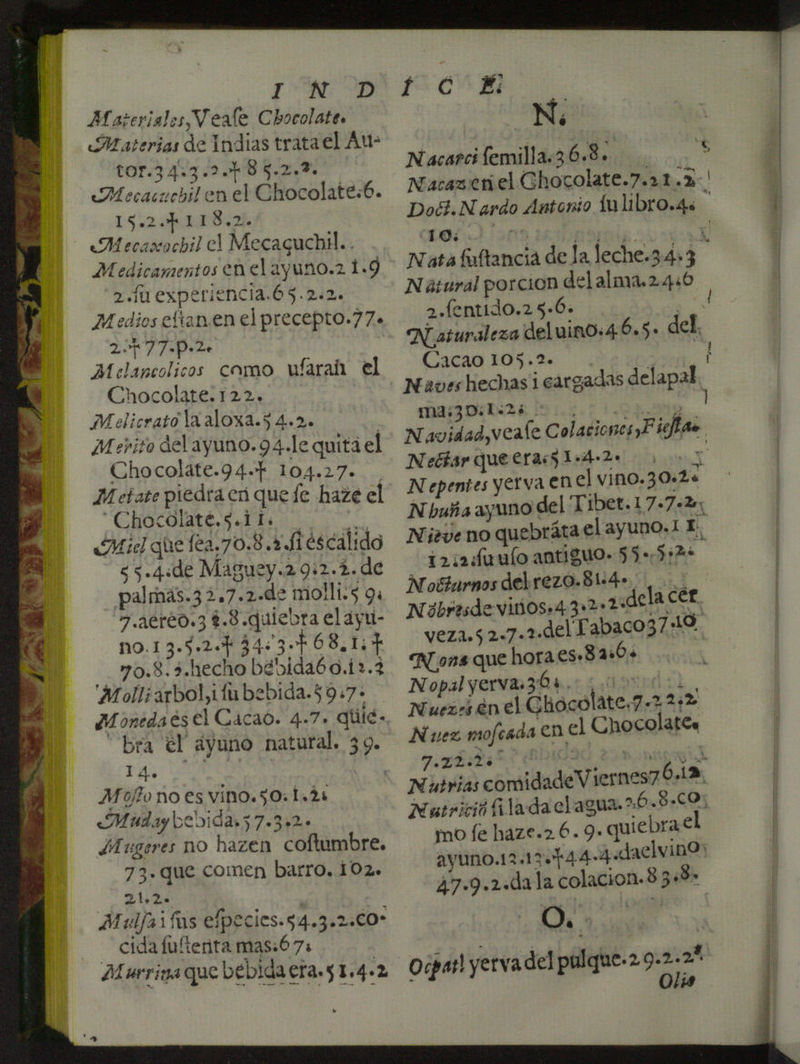 INDICE.
Materiales, Veaſe Chocolate.
Materias de Indias trata el Au-
tor.34.3.2.† 85.2.2.
Mecacuchil en el Chocolate.6.
15.2.† 118.2.
Mecaxochil el Mecaçuchil.
Medicamentos en el ayuno.21.9
2.ſu experiencia.65.2.2.
Medios eſtan en el precepto.77.
2.† 77.p.2.
Melancolicos como uſarań el
Chocolate.122.
Melicrato la aloxa.54.2.
Merito del ayuno.94.le quita el
Chocolate.94.† 104.27.
Metate piedra en que ſe haze el
Chocolate.5.11.
Miel que ſea.70.8.2.ſi es calido
55.4.de Maguey.29.2.2.de
palmas.32.7.2.de molli.59.
7.aereo.32.8.quiebra el ayu-
no.13.5.2.† 34.3.† 68.1.†
70.8.2.hecho bebida60.12.2
Molli arbol,i ſu bebida.59.7.
Moneda es el Cacao. 4.7. quie-
bra el ayuno natural. 39.
14.
Moſto no es vino.50.1.2.
Muday bebida.57.3.2.
Mugeres no hazen coſtumbre.
73.que comen barro. 102.
21.2.
Mulſa i ſus eſpecies.54.3.2.co-
cida ſuſtenta mas.67.
Murrina que bebida era.51.4.2
N.
Nacarci ſemilla.36.8.
Nacaz en el Chocolate.7.21.2
Doct.Nardo Antonio ſu libro.4.
10.
Nata ſuſtancia de la leche.34.3
Natural porcion del alma.24.6
2.ſentido.25.6.
Naturaleza del uino.46.5. del
Cacao 105.2.
Naves hechas i cargadas delapal
ma.30.1.2.
Navidad,veaſe Colaciones,Fieſtas
Nectar que era.51.4.2.
Nepentes yerva en el vino.30.2.
Nbuña ayuno del Tibet.17.7.2.
Nieve no quebráta el ayuno.11
12.2.ſu uſo antiguo. 55.5.2.
Nocturnos del rezo.81.4.
Nōbres de vinos.43.2.2.dela cer
veza.52.7.2.del Tabaco37.10
Nona que hora es.82.6.
Nopal yerva.36.
Nuezes en el Chocolate.7.22.2
Nuez moſcada en el Chocolate,
7.22.2.
Nutrias comida de Viernes76.12
Nutriciō ſi la da el agua.26.8.co
mo ſe haze.26.9.quiebra el
ayuno.12.12.†44.4.dael vino
47.9.2.da la colacion.83.8.
O.
Ocpatl yerva del pulque.29.2.2.
Olio